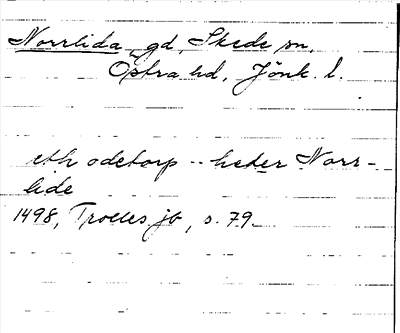 Norrlida, gd, Skede sn,
Östra hd, Jönk. l.
eth ödetorp -- heder Norr-
lide
1498, Trolles jb, s. 79.